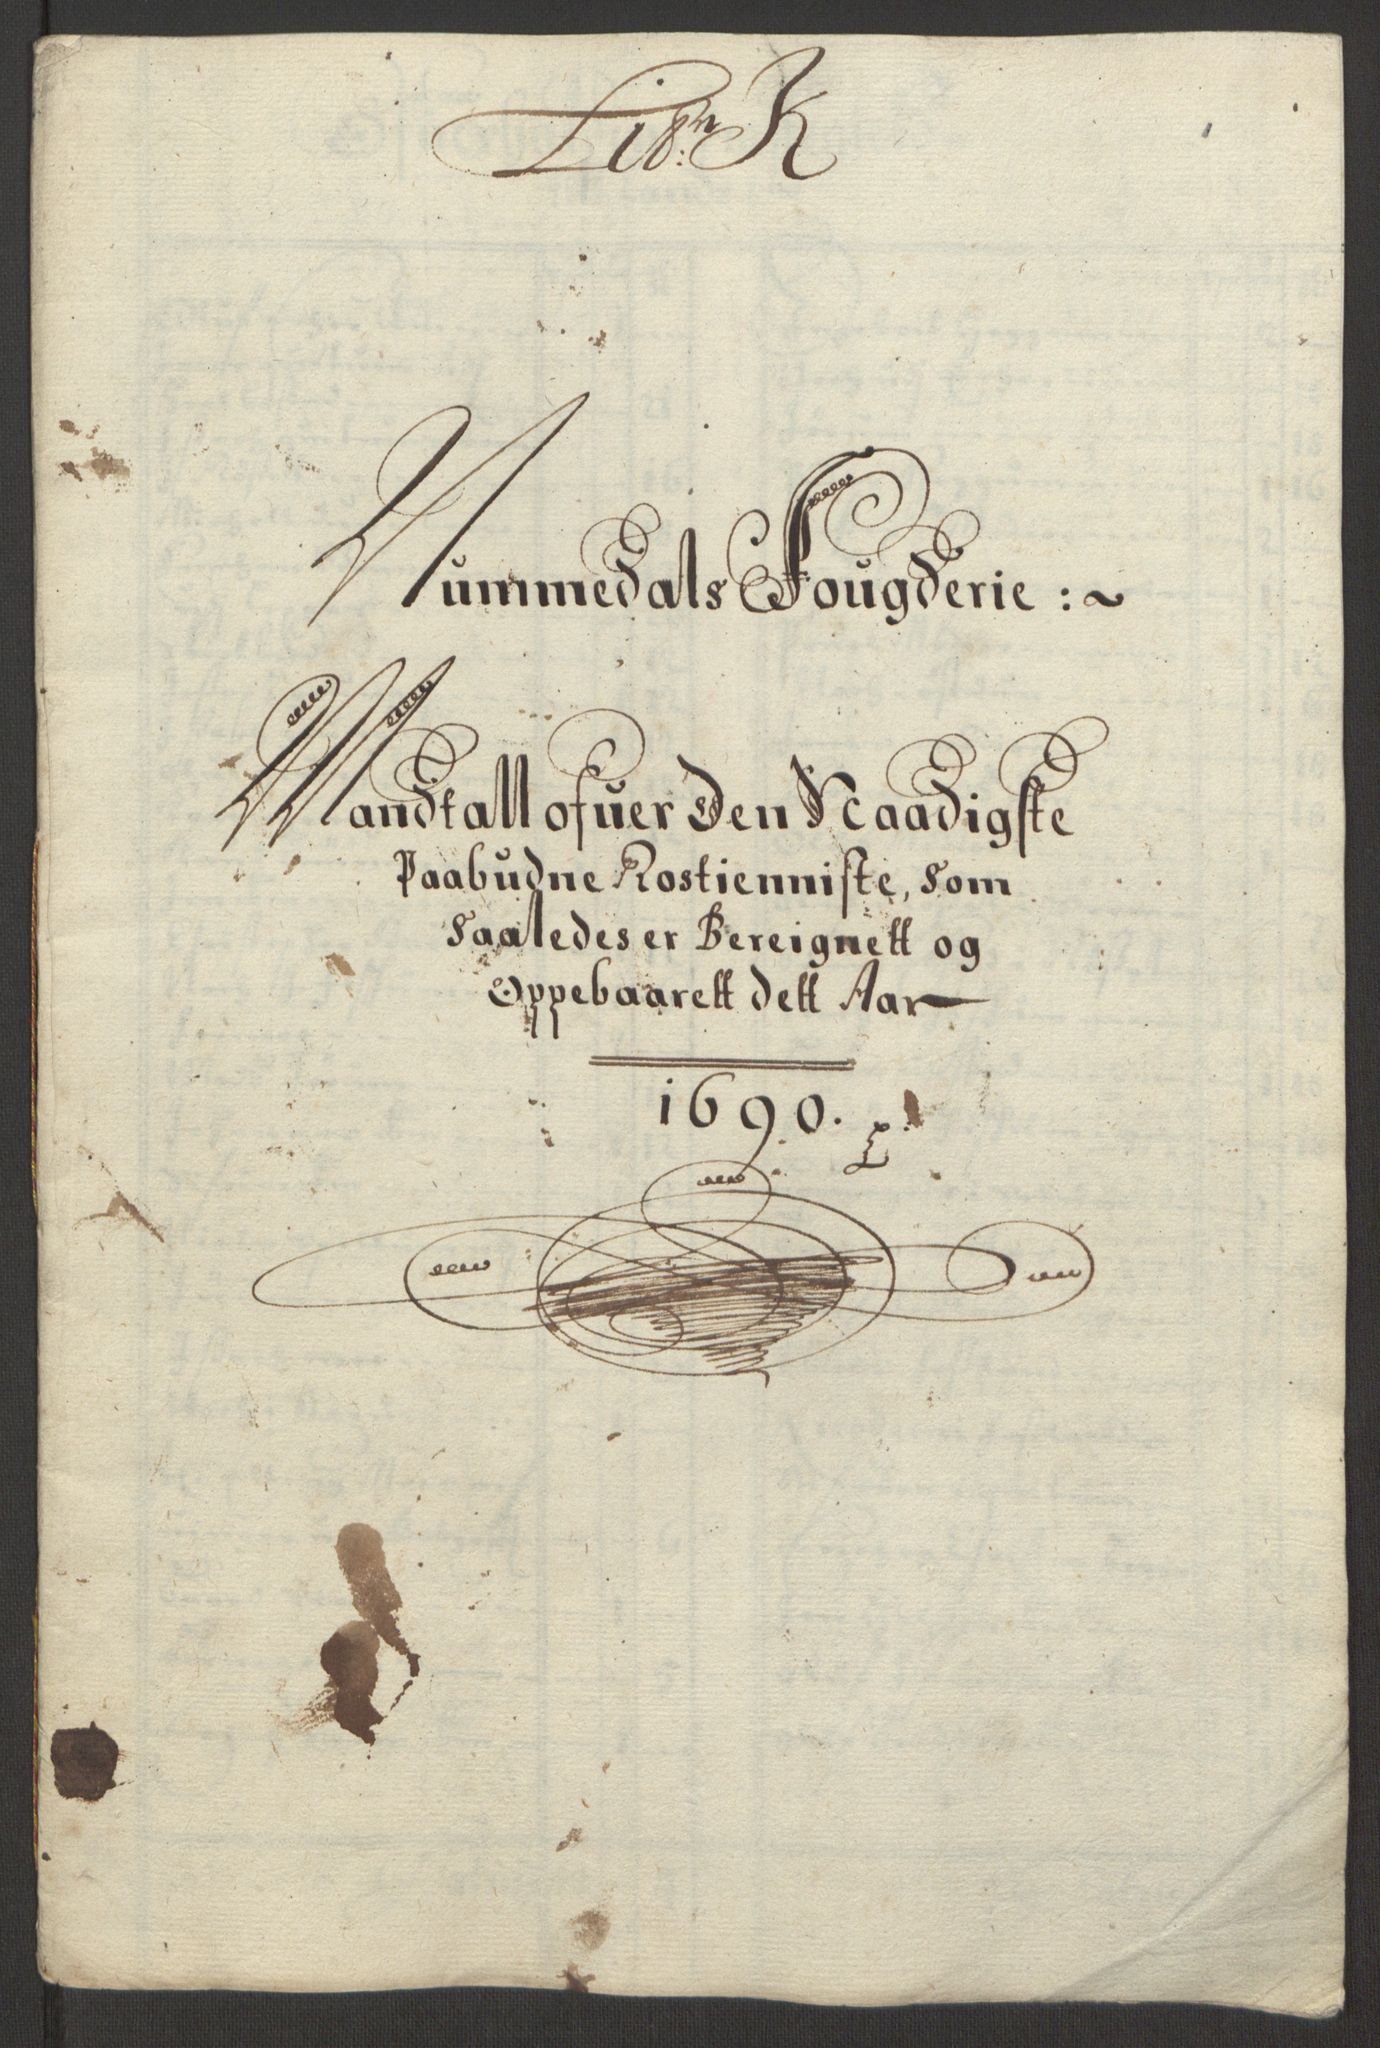 Lib:rn K
Nummedals Fougderie :~
Mandtall ofuer den Naadigste
Paabudne Rostienniste, som
saaledes er Bereignett og
Oppebaarett dett Aar
1690.